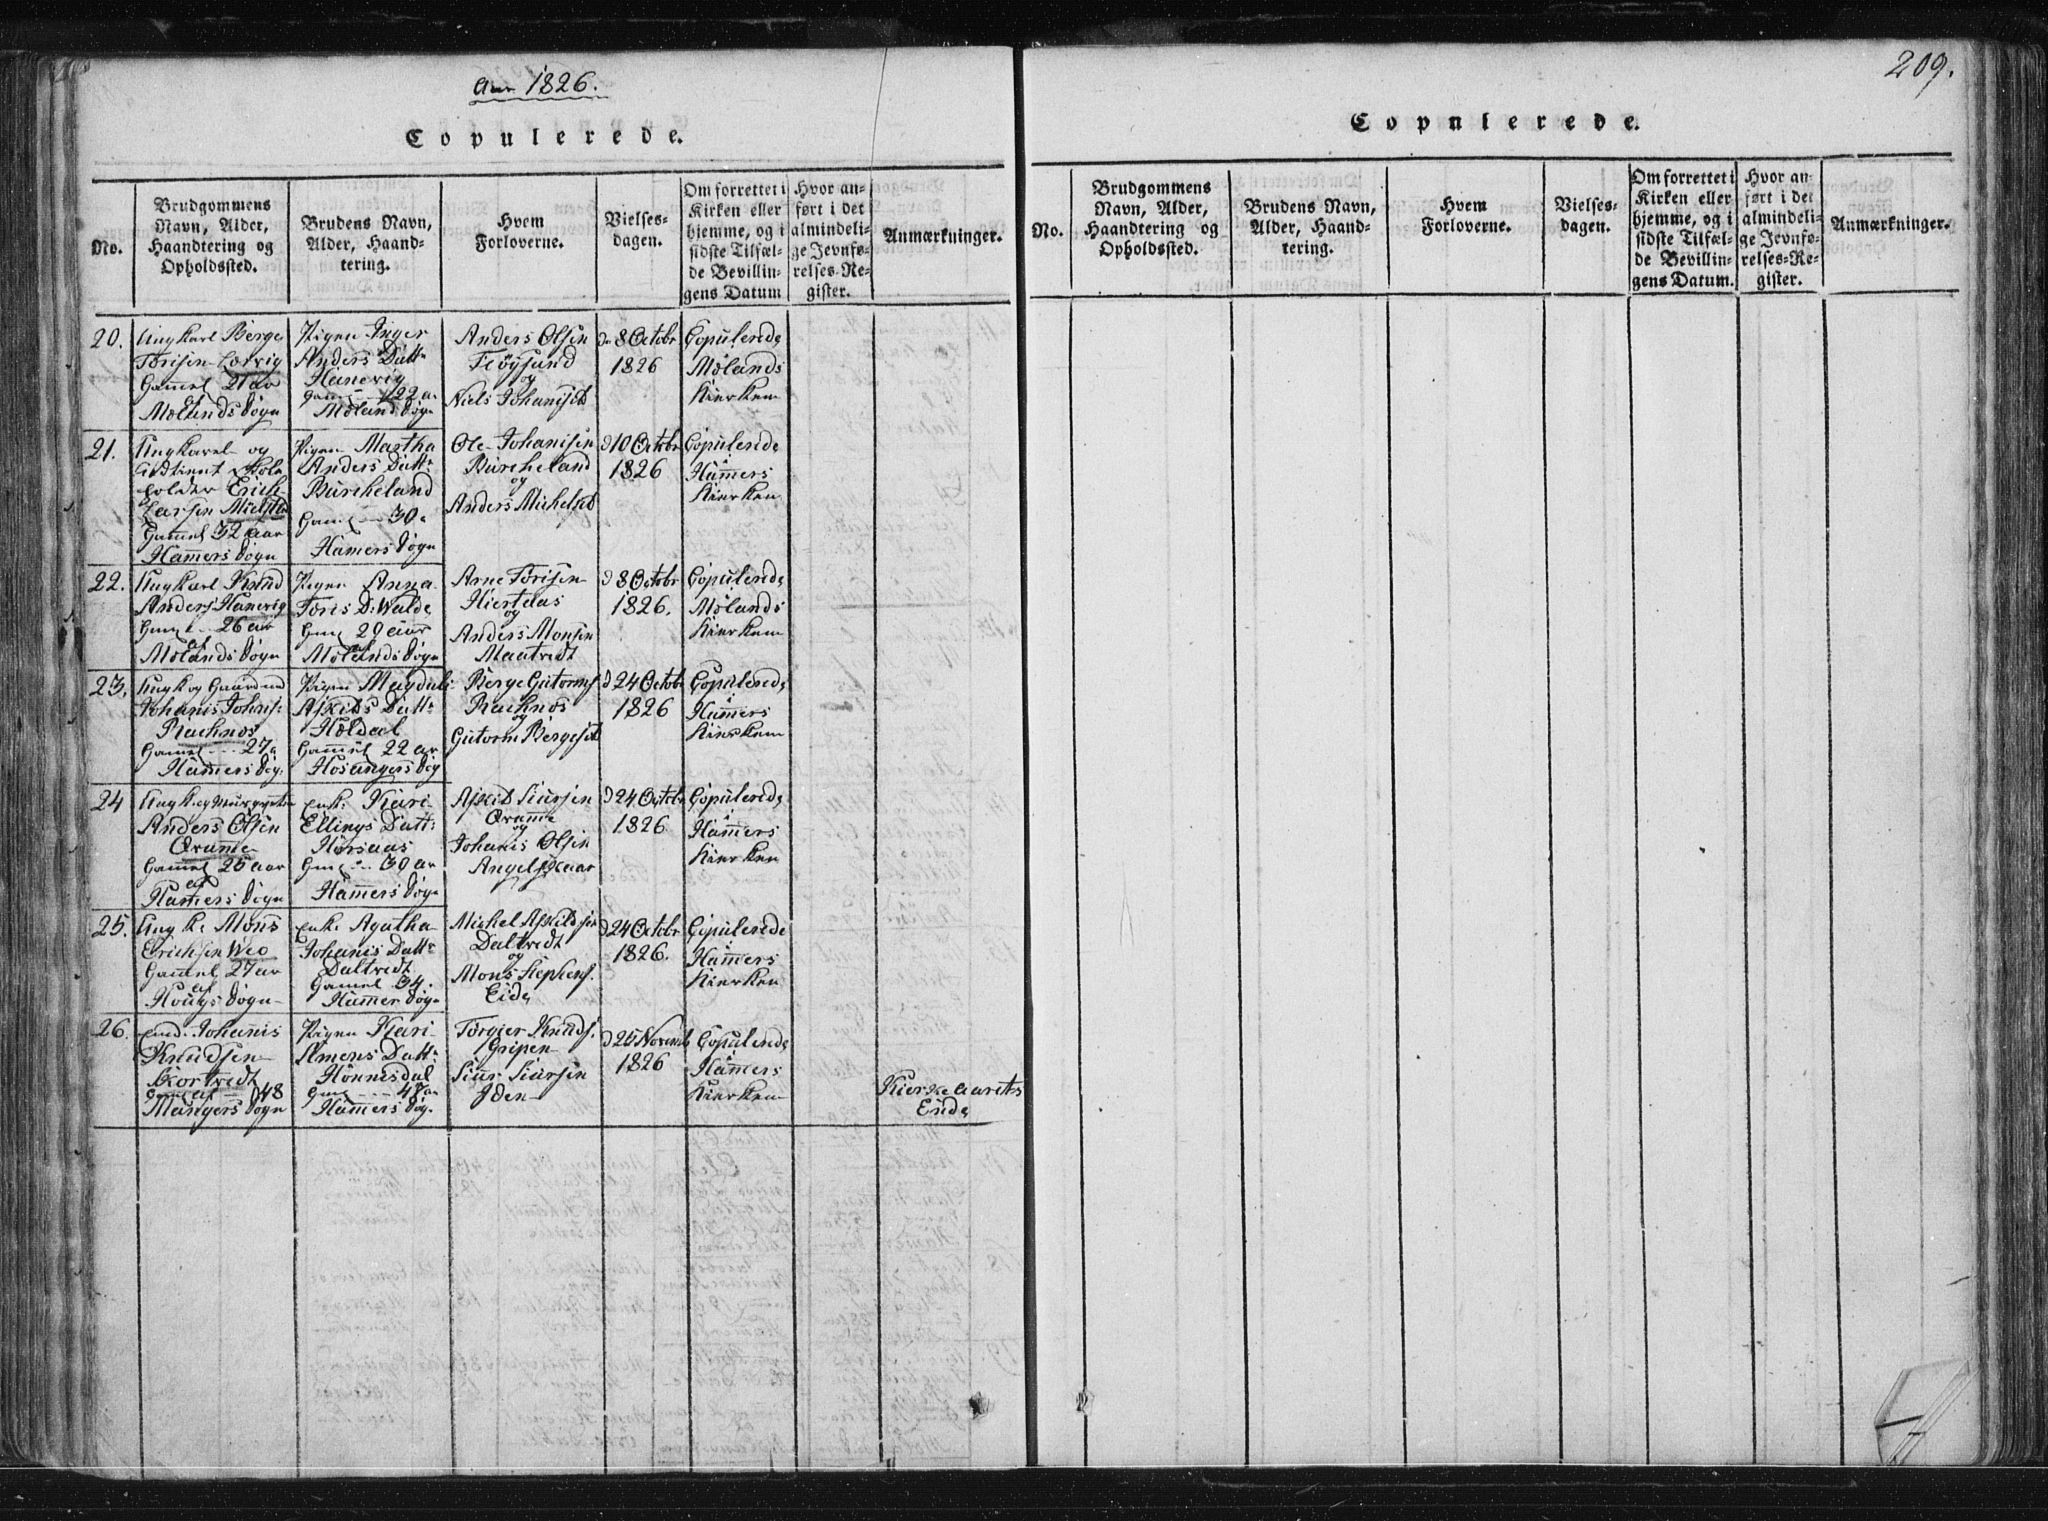 Aar 1826.
Copulerede.
No.
Brudgommens Navn, Alder, Haandtering og Opholdssted.
Brudens Navn, Alder, Haandtering.
Hvem Forloverne.
Vielsesdagen.
Om forrettet i Kirken eller hjemme, og i sidste Tilfælde Bevillingens Datum
Hvor anført i det almindelige Jevnførelses-Register.
Anmærkninger.
20.
Ungkarl Berge
Torisen
Gammel 21 aar
af
Molands Sogn
Pigen Inger
Anders Datt:
Hanevig
22 a
Molands Sogn
Anders Olsen
Fløysand
og
Niels Johanisen
d 8 Octobr
1826
Copulerede
Molands
Kierken
21.
Ungkarl og
Erich
Larsen
Gammel 32 aar
Hamers Sogn
Pigen Martha
Anders Datt:
Burcheland
Gaml 30 a
Hamers Sogn
Ole Johanisen
Burcheland
og
Anders Michelsen
d 10 Octobr
1826
Copulerede
i
Hamers
Kierken
22.
Ungkarl Knud
Anders: Hanevig
26 aar
af
Molands Sogn
Pigen Anna
Toris D: Walde
29 aar
af
Molands Sogn
Arne Torisen
Hiertaas
og
Anders Monsen
Maatvedt
d 8 Octobr
1826.
Copulerede
Molands
Kierken
23.
Ungk og Gaardmd
Johanis Johnis:
Rachnos
Gammel 27 a
Hamers Sog:
Pigen Magdeli
Askids Datt:
Holdal
Gammel 22 aar
Hosangers Sog
Berge Gutorms
Rachnos
og
Gutorm Bergesen
d 24 Octobr
1826
Copulerede
i
Hamers
Kierken
24
Anders Olsen
Qvamme
Gammel 25 aar
af
Hamers Sogn
Enke Kari
Ellings Datt:
Horsaas
30 aar
Hamers Sogn
Askid Siursen
Qvamme
og
Johanis Olsen
Angelskaar
d 24 Octobr
1826
Copulerede
i
Hamers
Kierken
25.
Ungk. Mons
Erichsen Weo
Gammel 27 aar
af
Hougs Sogn
Enke Agatha
Johanis Datt:
Daltvedt
Gammel 34.
Hamer Sogn
Michel Askildsen
Daltvedt
og
Mons Stephens:
Eide
d 24 Octobr
1826.
Copulerede
i
Hamers
Kierken
26.
Johanis
Knudsen
Skortvedt
48
Mangers Sogn
Pigen Kari
Simens Datt:
Honnesdal
47 a
Hamers Sog:
Torgier Knuds:
Gripen
Siur Siursen
Iden
d 25 Novemb
1826
Copulerede
i
Hamers
Kierken
Kierke aarets
Ende
209.
Copulerede.
No.
Brudgommens Navn, Alder, Haandtering og Opholdssted.
Brudens Navn, Alder, Haandtering.
Hvem Forloverne.
Vielsesdagen.
Om forrettet i Kirken eller hjemme, og i sidste Tilfælde Bevillingens Datum.
Hvor anført i det almindelige Jevnførelses-Register.
Anmærkninger.